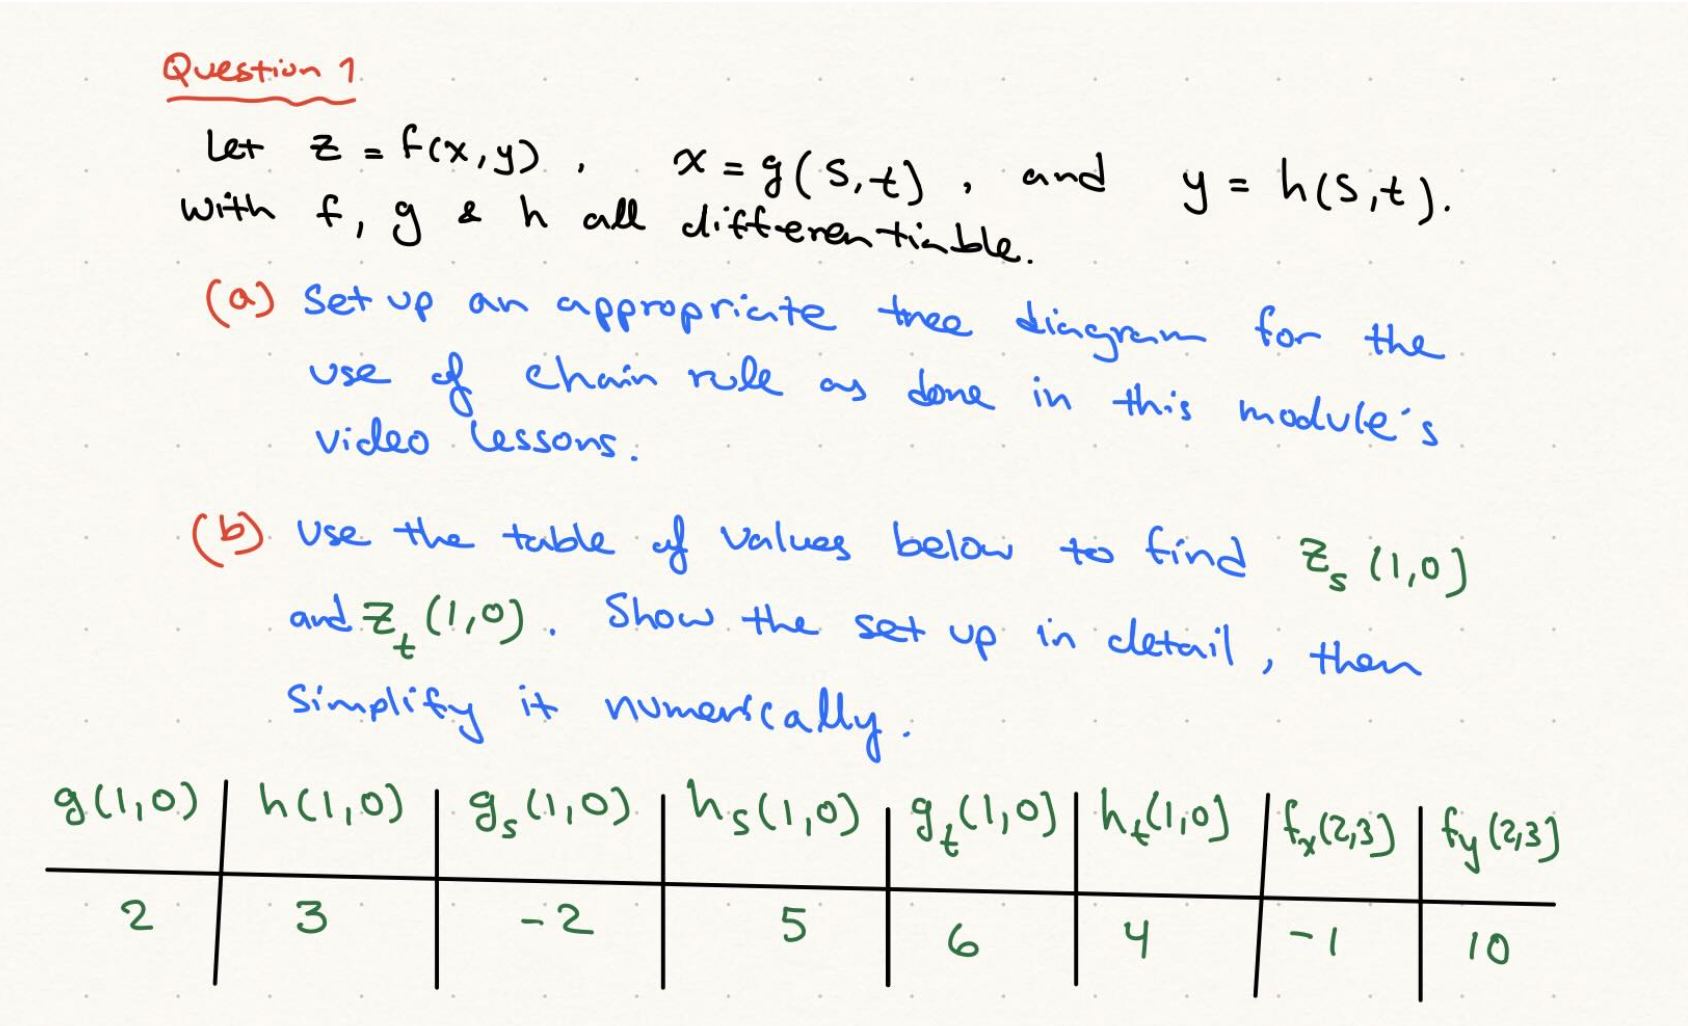 Question 1
Let z = f(x,y), x = g(s,t), and y = h(s,t).
With f, g & h all differentiable.
(a) Set up an appropriate tree diagram for the
use of chain rule as done in this module's
video lessons.
(b) Use the table of values below to find z_s (1,0)
and z_t (1,0). Show the set up in detail, then
simplify it numerically.
g(1,0) | h(1,0) | g_s(1,0) | h_s(1,0) | g_t(1,0) | h_t(1,0) | f_x(2,3) | f_y(2,3)
2 | 3 | -2 | 5 | 6 | 4 | -1 | 10